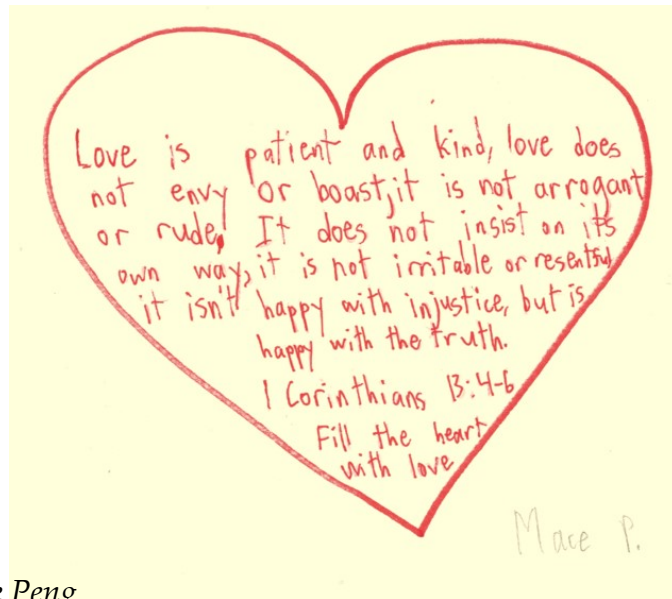 Love is patient and kind, love does
not envy or boast, it is not arrogant
or rude. It does not insist on its
own way, it is not irritable or resentful
it isn't happy with injustice, but is
happy with the truth.
1 Corinthians 13:4-6
Fill the heart
with love
Mace P.
Peng